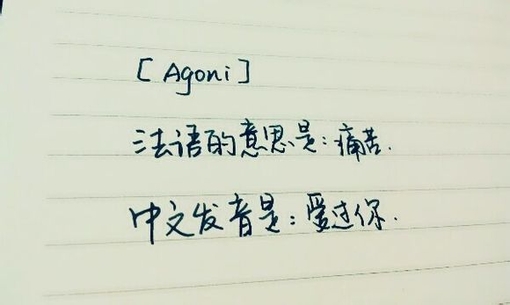 [Agoni]
法语的意思是：痛苦.
中文发音是：爱过你.